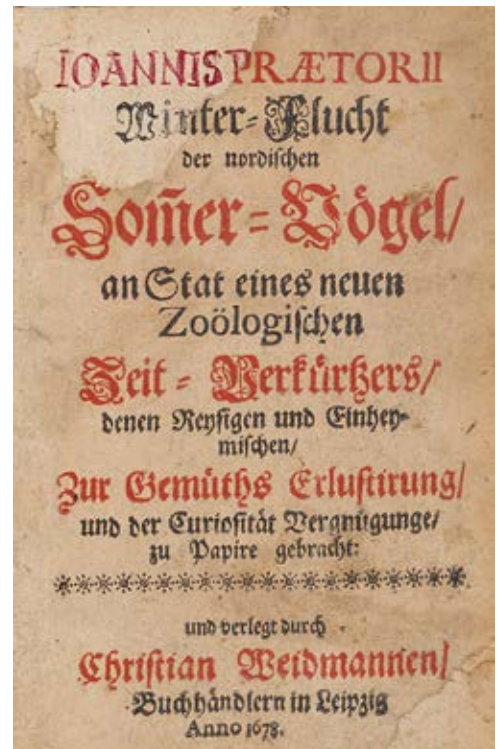 IOANNIS PRÆTORII
Winter-Flucht
der nordischen
Som̃er-Vögel/
an Stat eines neuen
Zoölogischen
Zeit-Verkürtzers/
denen Reysigen und Einhey-
mischen/
Zur Gemüths Erlustirung/
und der Curiosität Vergnügunge/
zu Papire gebracht:
und verlegt durch
Christian Weidmannen/
Buchhändlern in Leipzig
Anno 1678.